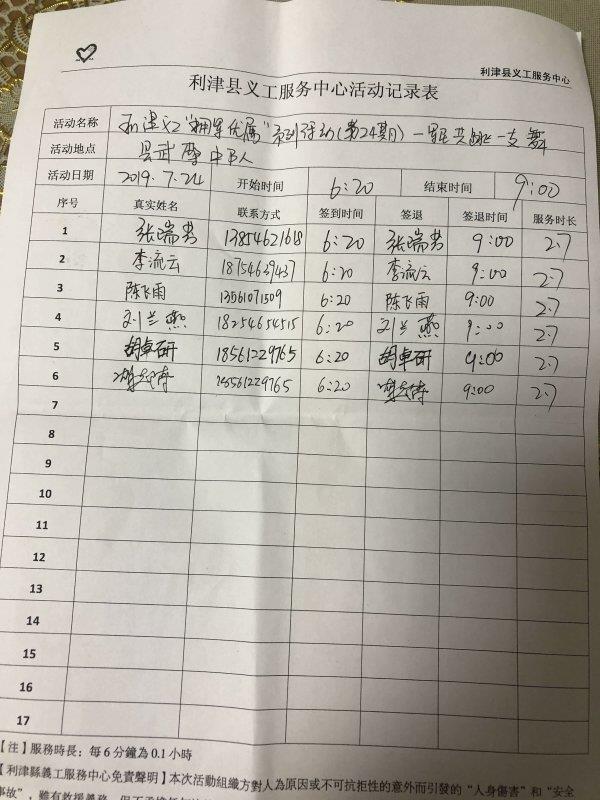 利津县义工服务中心
利津县义工服务中心活动记录表
活动名称 利津义工“拥军优属”系列活动(第24期)一军民共跳一支舞
活动地点 县武警中队
活动日期 2019.7.24 开始时间 6:20 结束时间 9:00
序号 真实姓名 联系方式 签到时间 签退 签退时间 服务时长
1 张瑞芳 13854621618 6:20 张瑞芳 9:00 2.7
2 李流云 18754639437 6:20 李流云 9:00 2.7
3 陈飞雨 13561071509 6:20 陈飞雨 9:00 2.7
4 刘兰燕 18254654515 6:20 刘兰燕 9:00 2.7
5 胡卓研 18561229765 6:20 胡卓研 9:00 2.7
6 18561229765 6:20 9:00 2.7
7
8
9
10
11
12
13
14
15
16
17
【注】服務時長：每6分鐘為0.1小時
【利津縣義工服務中心免責聲明】本次活動組織方對人為原因或不可抗拒性的意外而引發的“人身傷害”和“安全
事故”，雖有救援義務，但不承擔任何